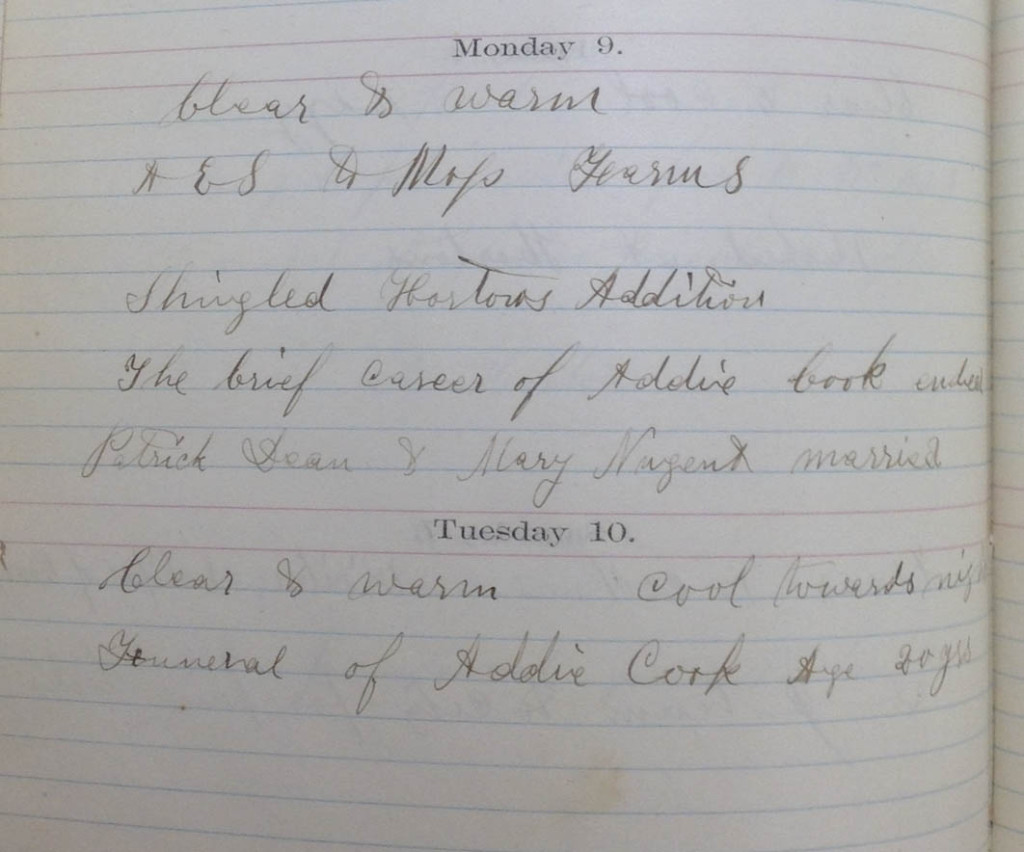 Monday 9.
Clear & warm
A E S & Mops Fearms
Shingled Hortows Addition
The brief career of Addie Cook ended
Patrick Dean & Mary Nugent married
Tuesday 10.
Clear & warm Cool towards
Funneral of Addie Cook Age 20 yrs